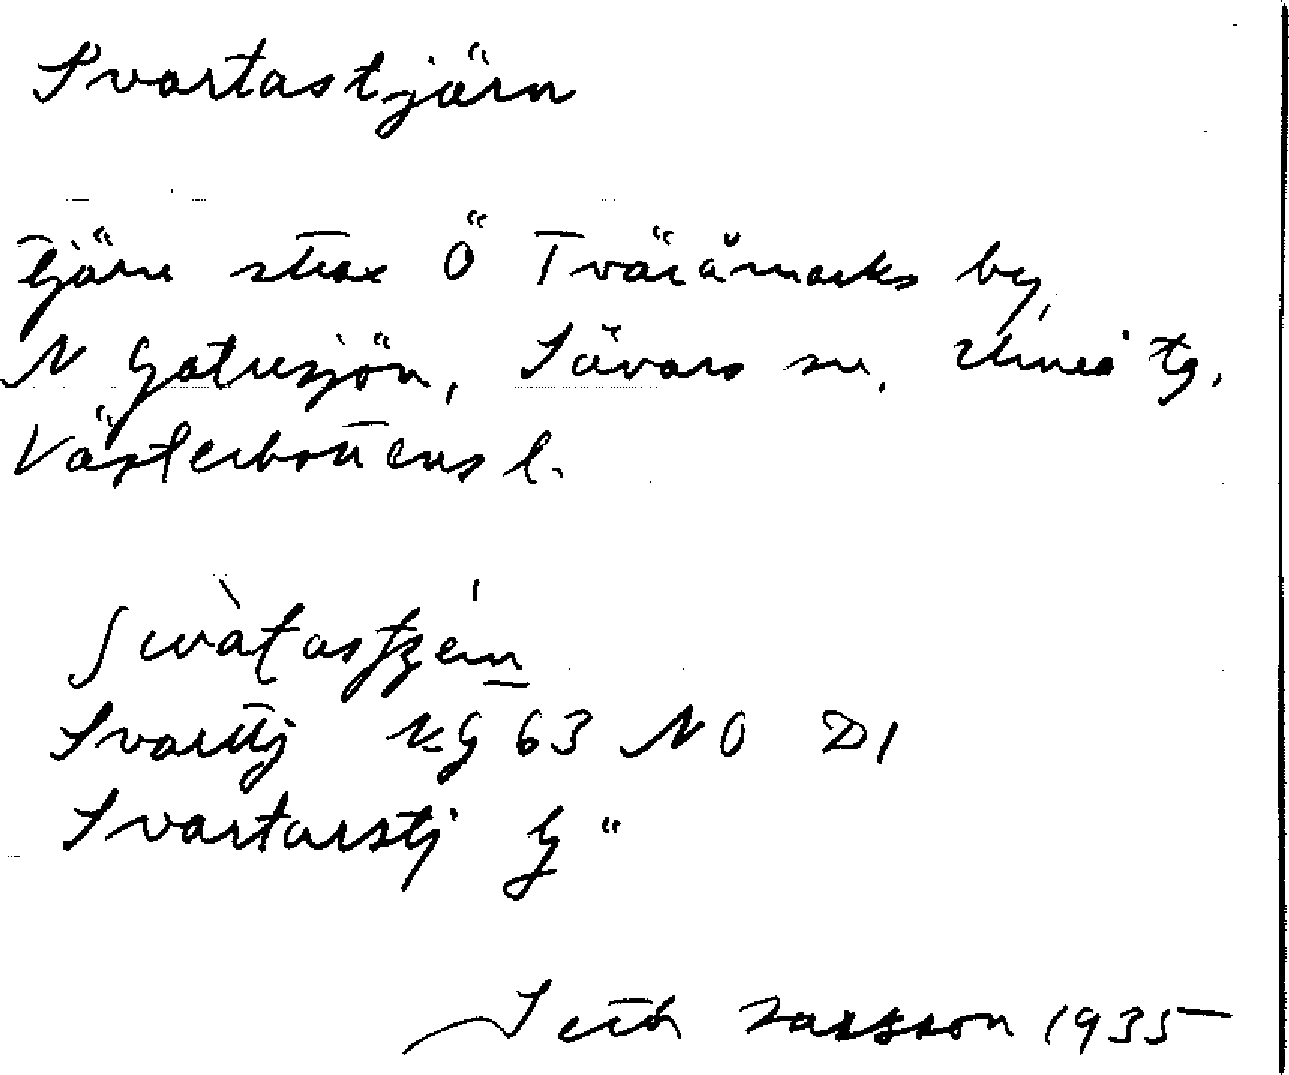 Svartastjärn
Tjärn strax Ö Tväråmarks by,
N Gatresjön, Sävars sn, Umeå tg,
Västerbottens l.
Svarttj 63 NO D1
Svartarstj G "
Seth Larsson 1935